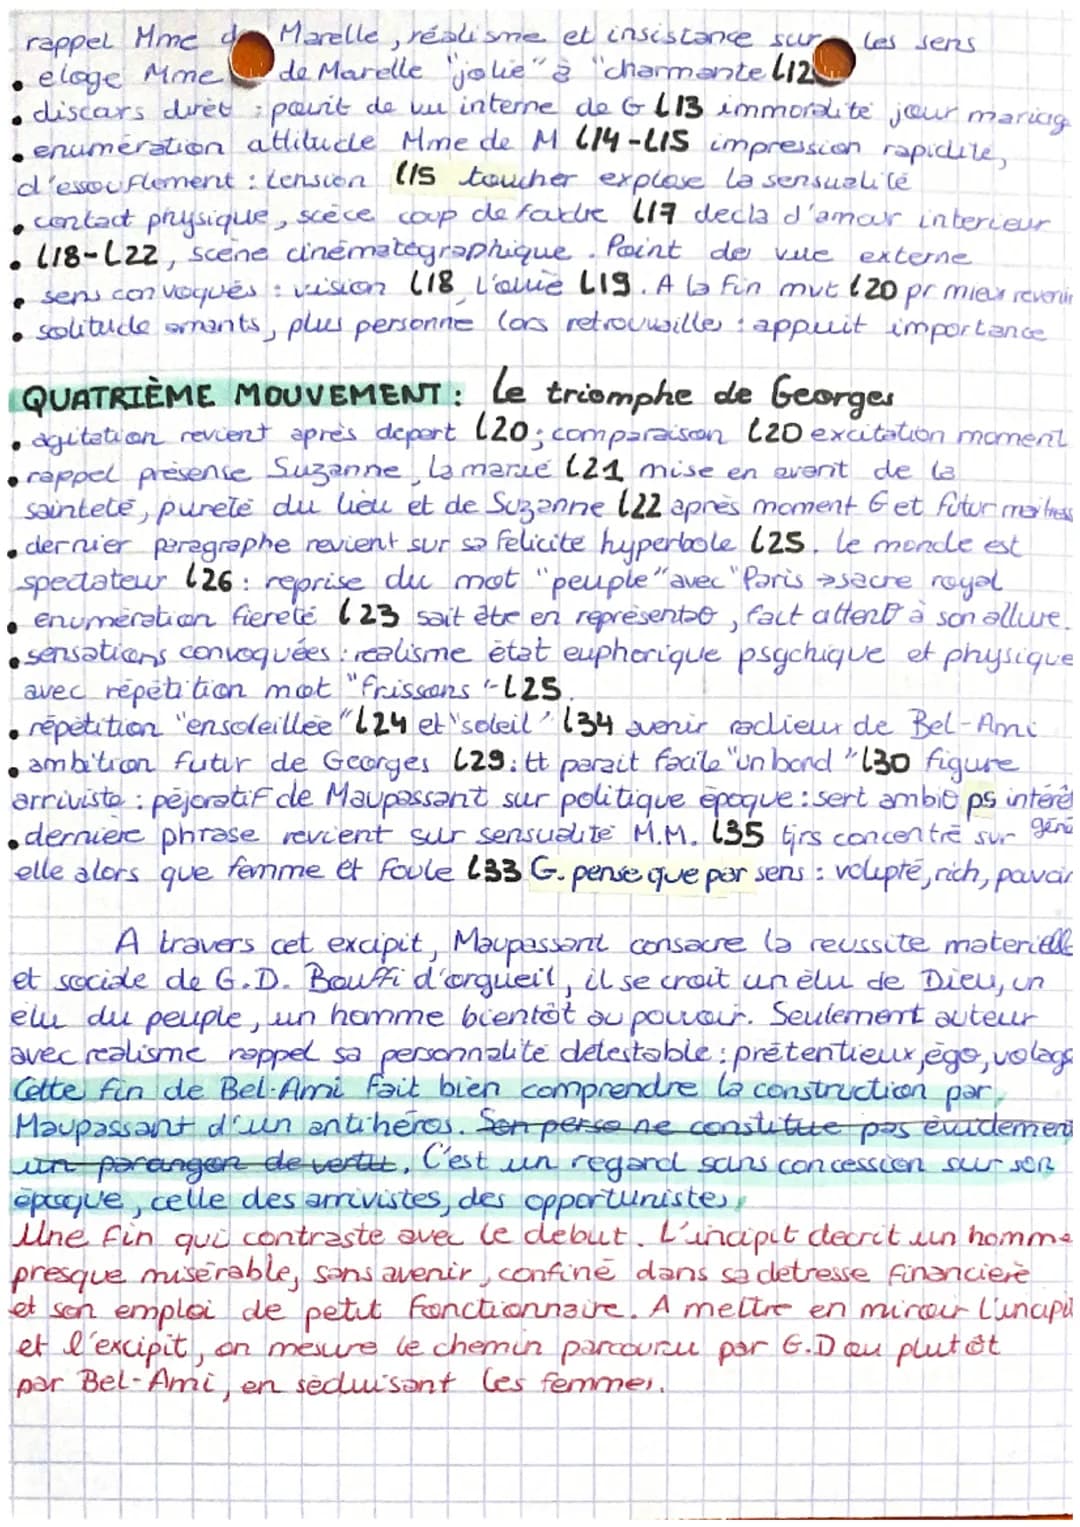 rappel Mme de Marelle, réalisme et insistance sur les sens
• eloge Mme de Marelle "jolie" à "charmante L12
• discars dirèt : pouit de vu interne de G L13 immoralité jour mariag
• enumération attitude Mme de M L14-L15 impression rapidité,
d'essouflement : tension L15 toucher explose la sensualité
• contact physique, scèce coup de foudre L17 decla d'amour interieur
• L18-L22, scène cinématographique. Point de vue externe
• sens convoqués : vision L18, l'ouïe L19. A la fin mvt L20 pr mieux revenir
• solitude amants, plus personne lors retrouvaille : appuit importance
QUATRIÈME MOUVEMENT : Le triomphe de Georges
• agitation revient après depart L20; comparaison L20 excitation moment
• rappel présense Suzanne, la marié L21 mise en avant de la
sainteté, pureté du lieu et de Suzanne L22 après moment G et futur maitress
• dernier paragraphe revient sur sa felicité hyperbole L25. le monde est
spectateur L26 : reprise du mot "peuple" avec "Paris →sacre royal
• enumération fiereté L23 sait être en représentat°, fait attent° à son allure.
• sensations convoquées : realisme état euphorique psychique et physique
avec répétition mot "frissons"-L25.
• répétition "ensoleillée" L24 et "soleil" L34 avenir radieux de Bel-Ami
• ambition futur de Georges L29 : tt parait facile "un bond" L30 figure
arriviste : péjoratif de Maupassant sur politique époque : sert ambi° ps intérêt géné
• dernière phrase revient sur sensualité M.M. L35 tjrs concentré sur
elle alors que femme et foule L33 G. pense que par sens : volupté, rich, pouvoir
A travers cet excipit, Maupassant consacre la reussite materielle
et sociale de G.D. Bouffi d'orgueil, il se croit un élu de Dieu, un
élu du peuple, un homme bientôt au pouvoir. Seulement auteur
avec realisme rappel sa personnalité détestable : prétentieux, égo, volage
Cette fin de Bel-Ami fait bien comprendre la construction par
Maupassant d'un antihéros. Son perso ne constitue pas évidement
un parangon de vertu. C'est un regard sans concession sur son
époque, celle des arrivistes, des opportunistes,
Une fin qui contraste avec le debut. L'incipit decrit un homme
presque misérable, sans avenir, confiné dans sa detresse financière
et son emploi de petit fonctionnaire. A mettre en miroir l'incipit
et l'excipit, on mesure le chemin parcouru par G.D ou plutôt
par Bel-Ami, en séduisant les femmes.